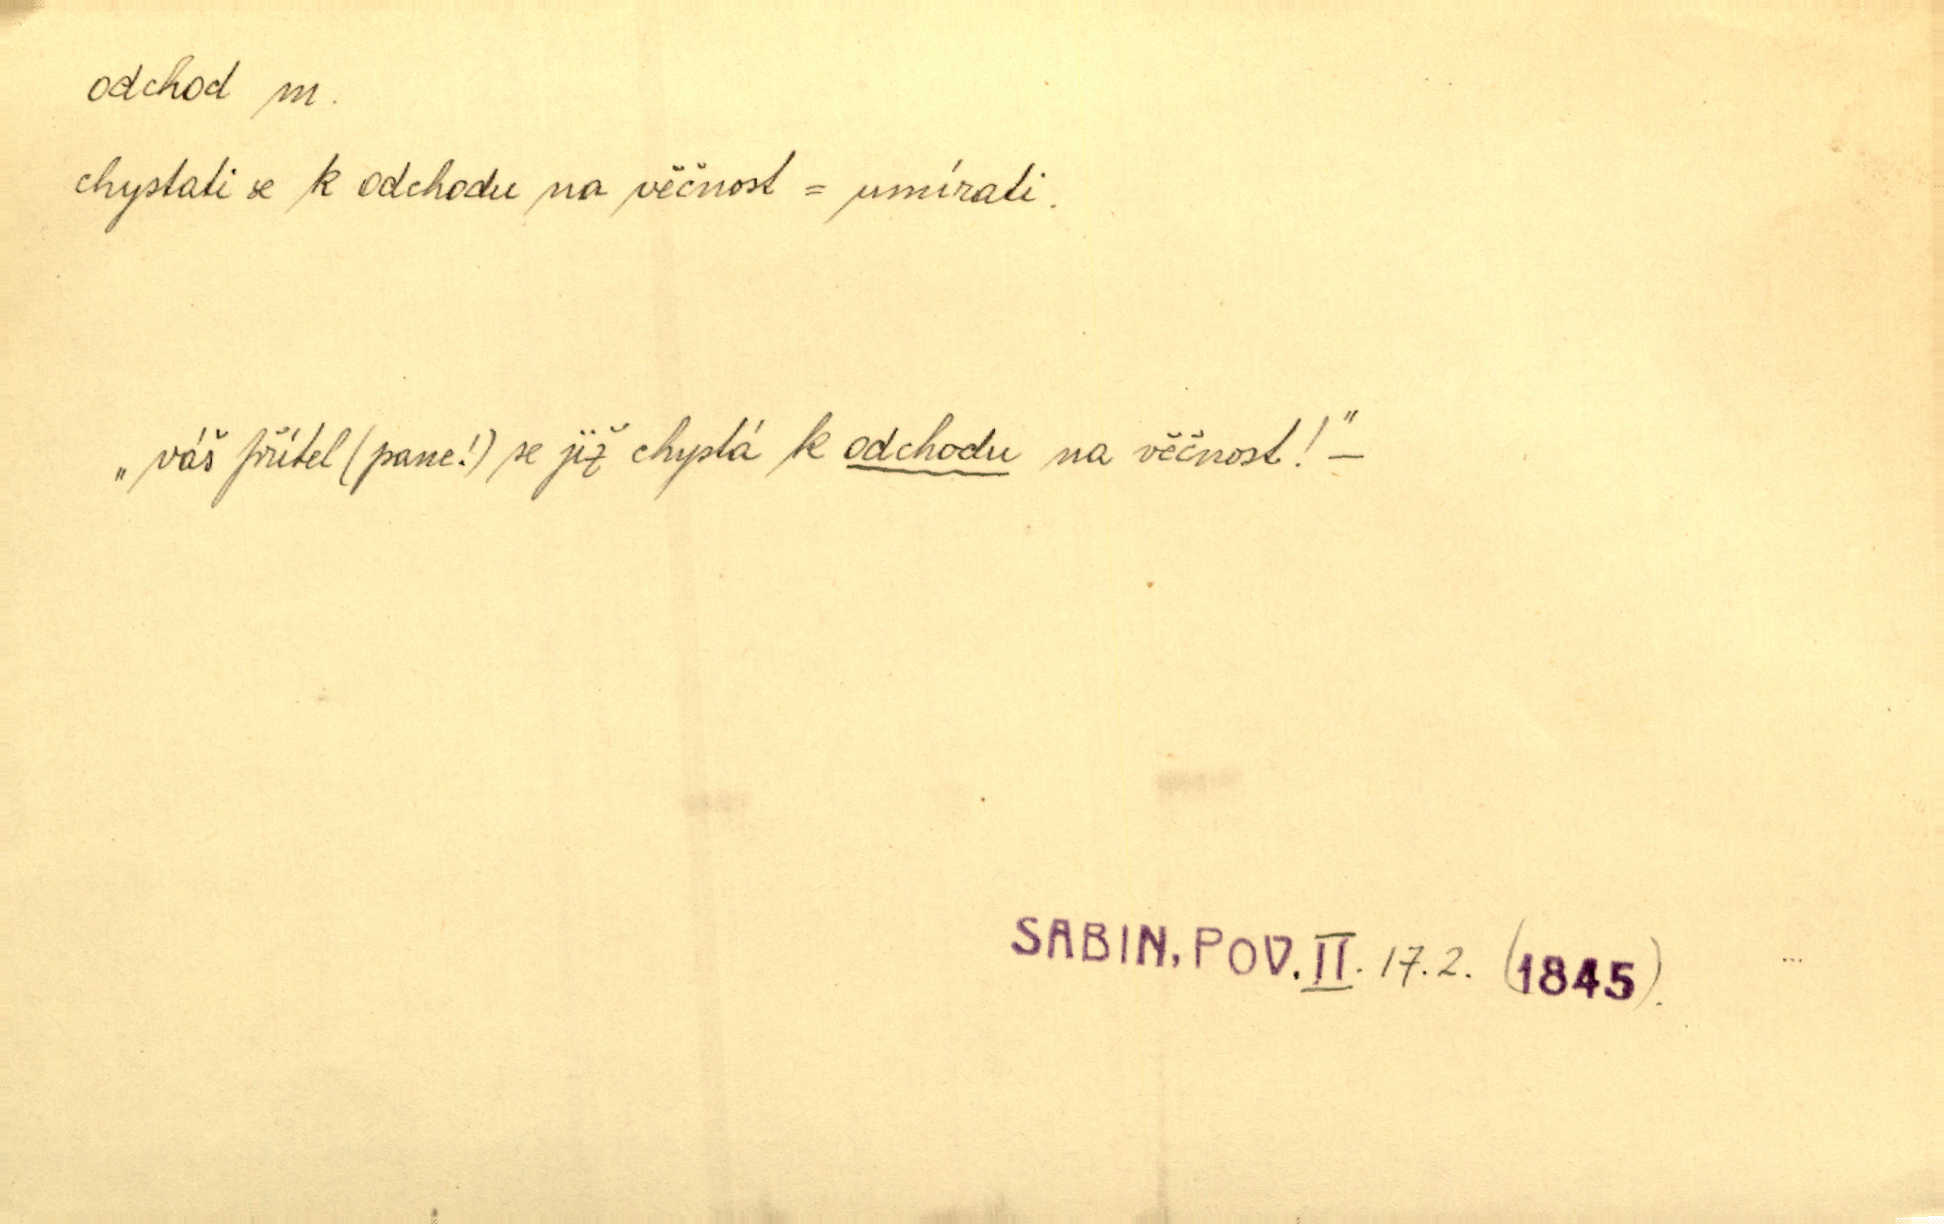 odchod m.
chystati se k odchodu na věčnost = umírati.
„váš přítel (pane!) se již chystá k odchodu na věčnost!" –
SABIN, POV. II. 17. 2. (1845).